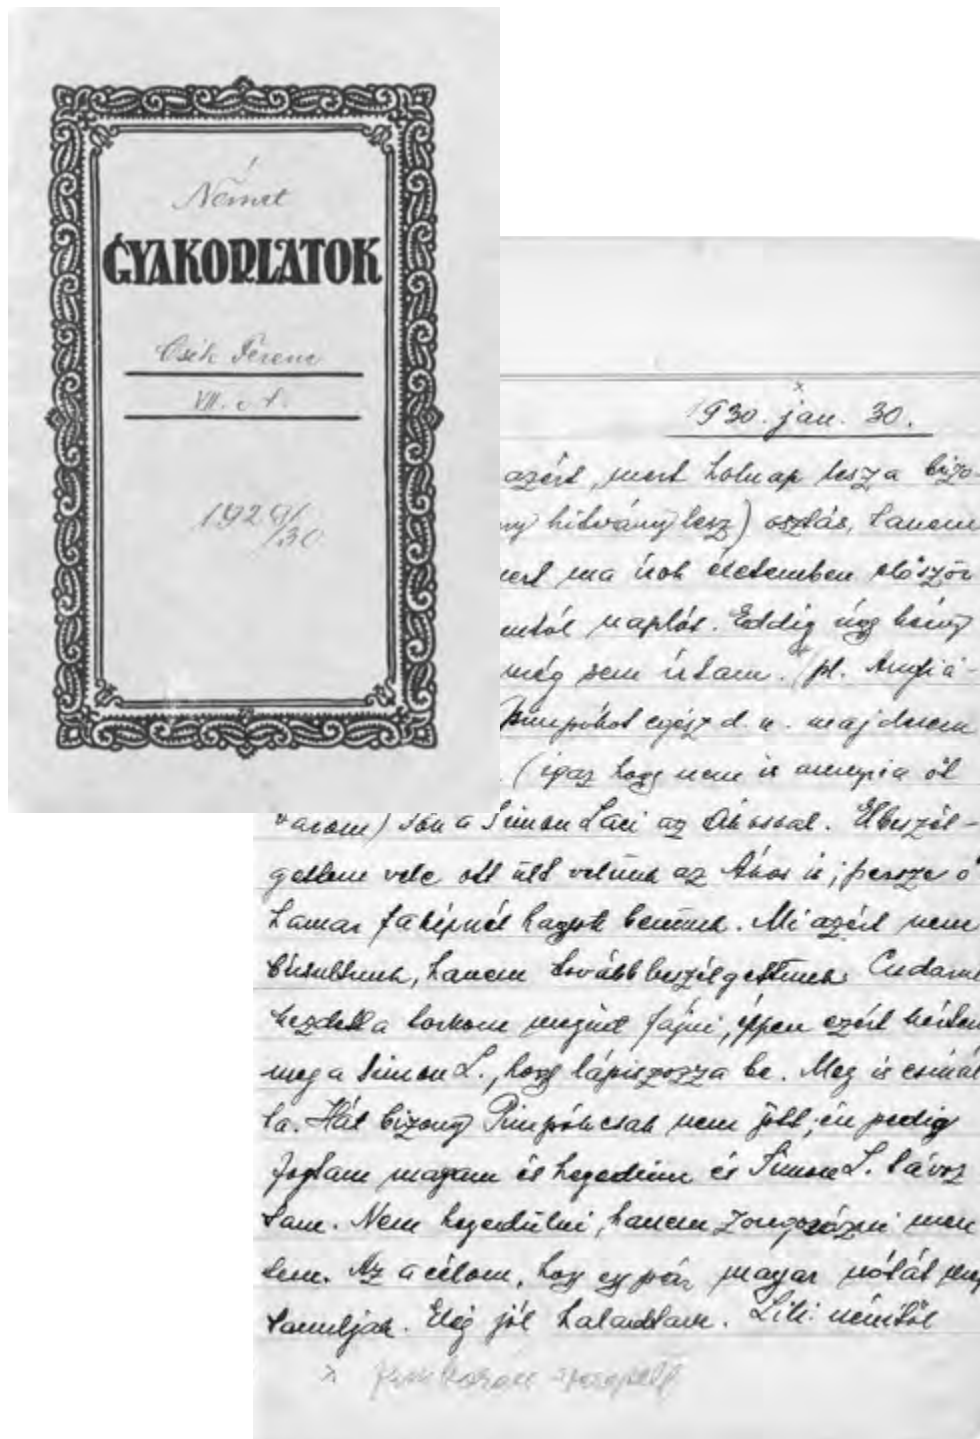 Német
GYAKORLATOK
Csik Ferenc
VII. o. t.
1929/30
1930. jan. 30.
azért, mert holnap lesz a bizo-
ny hitvány lesz) osztás, hanem
mert ma írok életemben először
naplót. Eddig úgy
még sem írtam. (pl.
egész d. u. majdnem
(igaz hogy nem is annyira őt
várom) Jön a Simon Laci az Ákossal. Elbeszél-
gettem vele ott ült velünk az Ákos is; persze ő
hamar faképnél hagyott bennünk. Mi azért nem
búsultunk, hanem tovább beszélgettünk. Cudarul
kezdett a torkom megint fájni, éppen ezért kértem
meg a Simon L., hogy lápiszozza be. Meg is csinál
ta. Hát bizony Pimpók csak nem jött, én pedig
fogtam magam és hegedűm és Simon L. távoz
tam. Nem hegedülni, hanem zongorázni men
tem. Az a célom, hogy egy pár magyar nótát meg
tanuljak. Elég jól haladtam. Lili nénitől
x